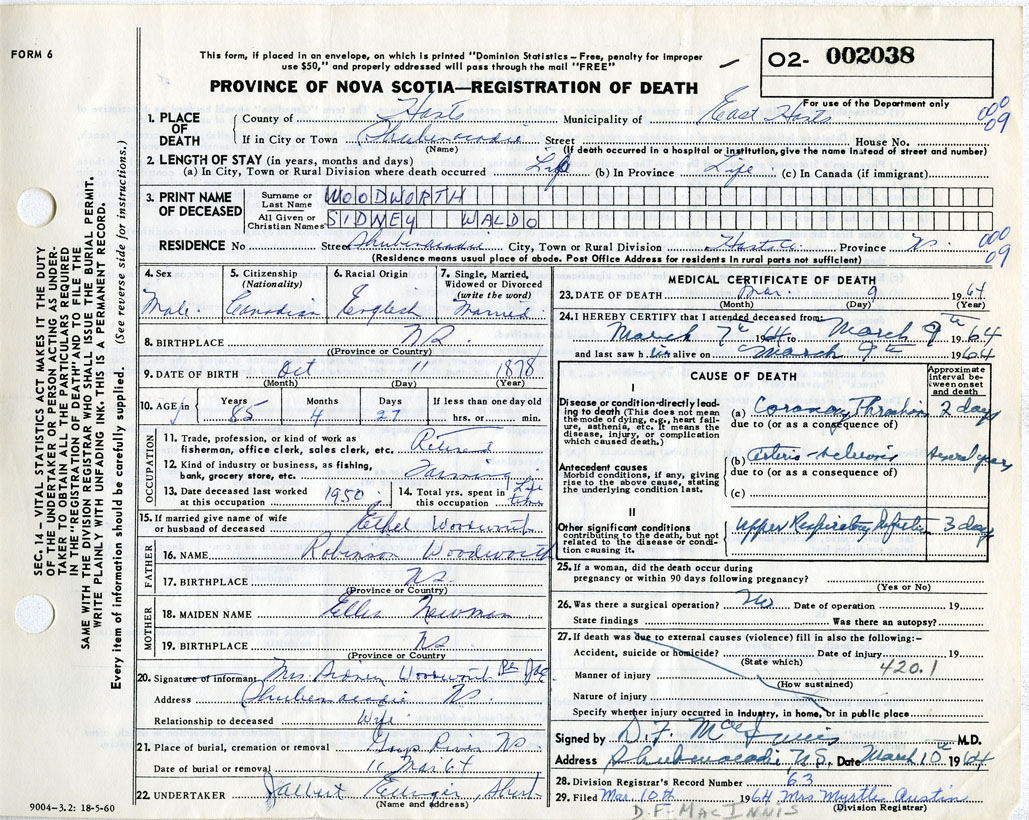 FORM 6
This form, if placed in an envelope, on which is printed "Dominion Statistics – Free, penalty for improper
use $50," and properly addressed will pass through the mail "FREE"
O2- 002038
PROVINCE OF NOVA SCOTIA—REGISTRATION OF DEATH
For use of the Department only
1. PLACE OF DEATH County of Hants Municipality of East Hants 000 09
If in City or Town Shubenacadie Street House No.
(Name) (If death occurred in a hospital or institution, give the name instead of street and number)
2. LENGTH OF STAY (in years, months and days)
(a) In City, Town or Rural Division where death occurred Life (b) In Province Life (c) In Canada (if immigrant)
3. PRINT NAME OF DECEASED
Surname or Last Name WOODWORTH
All Given or Christian Names SIDNEY WALDO
RESIDENCE No Street Shubenacadie City, Town or Rural Division Hants Co Province N.S. 000 09
(Residence means usual place of abode. Post Office Address for residents in rural parts not sufficient)
4. Sex Male
5. Citizenship (Nationality) Canadian
6. Racial Origin English
7. Single, Married, Widowed or Divorced (write the word) Married
8. BIRTHPLACE NS
(Province or Country)
9. DATE OF BIRTH Oct 11 1878
(Month) (Day) (Year)
10. AGE Years 85 Months 4 Days 27 If less than one day old hrs. or min.
OCCUPATION
11. Trade, profession, or kind of work as
fisherman, office clerk, sales clerk, etc. Retired
12. Kind of industry or business, as fishing,
bank, grocery store, etc. Farming
13. Date deceased last worked at this occupation 1950
14. Total yrs. spent in this occupation Life time
15. If married give name of wife
or husband of deceased Ethel Woodworth
FATHER
16. NAME Robinson Woodworth
17. BIRTHPLACE NS
(Province or Country)
MOTHER
18. MAIDEN NAME Ellis Newman
19. BIRTHPLACE NS
(Province or Country
20. Signature of informant Mrs Sidney Woodworth Per
Address Shubenacadie NS.
Relationship to deceased Wife
21. Place of burial, cremation or removal Gays River NS
Date of burial or removal 11 Mar 64
22. UNDERTAKER
(Name and address)
9004–3.2: 18-5-60
MEDICAL CERTIFICATE OF DEATH
23. DATE OF DEATH Mar. 9 1964
(Month) (Day) (Year)
24. I HEREBY CERTIFY that I attended deceased from:
March 7th 1964 to March 9th 1964
and last saw h im alive on March 9th 1964
CAUSE OF DEATH
Approximate interval between onset and death
I
Disease or condition directly leading to death (This does not mean the mode of dying, e.g., heart failure, asthenia, etc. It means the disease, injury, or complication which caused death.)
(a) Coronary Thrombosis 2 days
due to (or as a consequence of)
Antecedent causes
Morbid conditions, if any, giving rise to the above cause, stating the underlying condition last.
(b) Arterio-sclerosis Several years
due to (or as a consequence of)
(c)
II
Other significant conditions contributing to the death, but not related to the disease or condition causing it.
Upper Respiratory Infection 3 days
25. If a woman, did the death occur during
pregnancy or within 90 days following pregnancy?
(Yes or No)
26. Was there a surgical operation? No Date of operation 19
State findings Was there an autopsy?
27. If death was due to external causes (violence) fill in also the following:–
Accident, suicide or homicide? Date of injury 19
(State which) 420.1
Manner of injury
(How sustained)
Nature of injury
Specify whether injury occurred in industry, in home, or in public place
Signed by D. F. MacInnis M.D.
Address Shubenacadie, N.S. Date March 10th 1964
28. Division Registrar's Record Number 63
29. Filed Mar 10th 1964 Mrs Myrtle Austin
(Division Registrar)
D.F. MACINNIS
SEC. 14 – VITAL STATISTICS ACT MAKES IT THE DUTY
OF THE UNDERTAKER OR PERSON ACTING AS UNDER-
TAKER TO OBTAIN ALL THE PARTICULARS REQUIRED
IN THE "REGISTRATION OF DEATH" AND TO FILE THE
SAME WITH THE DIVISION REGISTRAR WHO SHALL ISSUE THE BURIAL PERMIT.
WRITE PLAINLY WITH UNFADING INK. THIS IS A PERMANENT RECORD.
Every item of information should be carefully supplied. (See reverse side for instructions.)